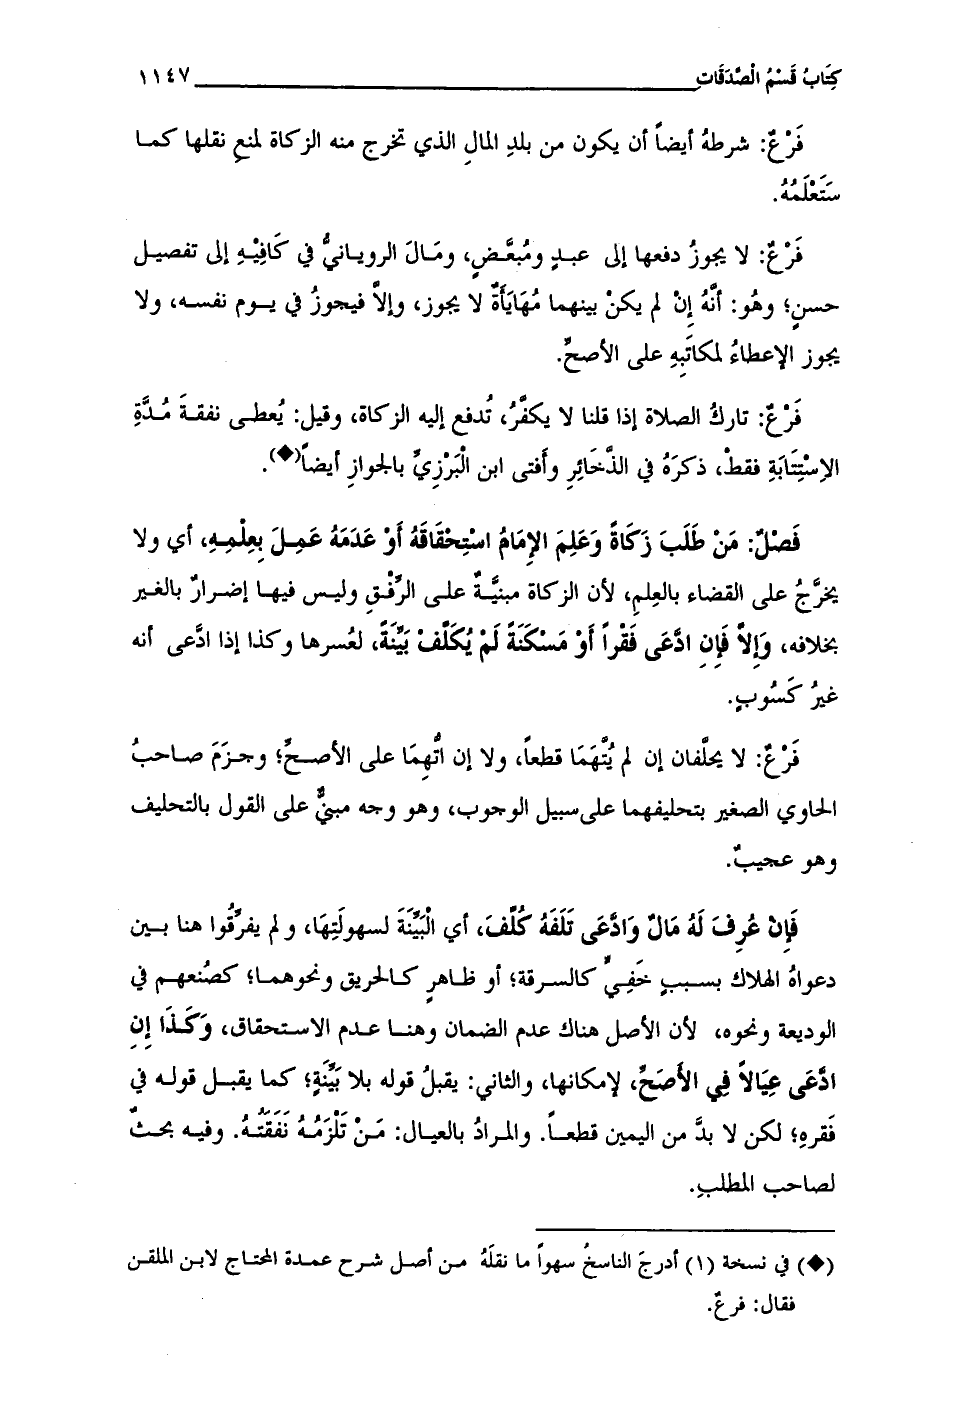 كِتَابُ قَسْمُ الْصَّدَقَاتِ ١١٤٧
فَرْعٌ: شرطهُ أيضاً أن يكون من بلدِ المالِ الذي تخرج منه الزكاة لمنعِ نقلها كما
سَتَعْلَمُهُ.
فَرْعٌ: لا يجوزُ دفعها إلى عبدٍ ومُبعَّضٍ، ومَالَ الرويانيُّ في كَافِيْهِ إلى تفصيل
حسنٍ؛ وهُو: أنَّهُ إِنْ لم يكنْ بينهما مُهَايَأَةٌ لا يجوز، وإلاَّ فيجوزُ في يوم نفسه، ولا
يجوز الإعطاءُ لمكاتَبِهِ على الأصحِّ.
فَرْعٌ: تاركُ الصلاة إذا قلنا لا يكفَّرُ، تُدفع إليه الزكاة، وقيل: يُعطى نفقةَ مُدَّةِ
الاِسْتِتَابَةِ فقطْ، ذكرَهُ في الذَّخَائِرِ وأَفتى ابن الْبَرْزِيِّ بالجوازِ أيضاً(◆).
فَصْلٌ: مَنْ طَلَبَ زَكَاةً وَعَلِمَ الإِمَامُ اسْتِحْقَاقَهُ أَوْ عَدَمَهُ عَمِلَ بِعِلْمِهِ، أي ولا
يخرَّجُ على القضاء بالعِلمِ، لأن الزكاة مبنيَّةٌ على الرِّفْقِ وليس فيها إضرارٌ بالغير
بخلافه، وَإِلاَّ فَإِنِ ادَّعَى فَقْراً أَوْ مَسْكَنَةً لَمْ يُكَلَّفْ بَيِّنَةً، لعُسرها وكذا إذا ادَّعى أنه
غيرُ كَسُوبٍ.
فَرْعٌ: لا يحلَّفان إن لم يُتَّهَمَا قطعاً، ولا إن اتُّهِمَا على الأصحِّ؛ وجزَمَ صاحبُ
الحاوي الصغير بتحليفهما على سبيل الوجوب، وهو وجه مبنيٌّ على القول بالتحليف
وهو عجيبٌ.
فَإِنْ عُرِفَ لَهُ مَالٌ وَادَّعَى تَلَفَهُ كُلِّفَ، أي الْبَيِّنَةَ لسهولَتِهَا، ولم يفرِّقُوا هنا بين
دعواهُ الهلاك بسببٍ خَفِيٍّ كالسرقة؛ أو ظاهرٍ كالحريق ونحوهما؛ كصُنعهم في
الوديعة ونحوه، لأن الأصل هناك عدم الضمان وهنا عدم الاستحقاق، وَكَذَا إِنِ
ادَّعَى عِيَالاً فِي الأَصَحِّ، لإمكانها، والثاني: يقبلُ قوله بلا بَيِّنَةٍ؛ كما يقبل قوله في
فَقره؛ لكن لا بدَّ من اليمين قطعاً. والمرادُ بالعيال: مَنْ تَلْزَمُهُ نَفَقَتُهُ. وفيه بحثٌ
لصاحب المطلبِ.
(◆) في نسخة (١) أدرجَ الناسخُ سهواً ما نقلَهُ من أصل شرح عمدة المحتاج لابن الملقن
فقال: فرعٌ.